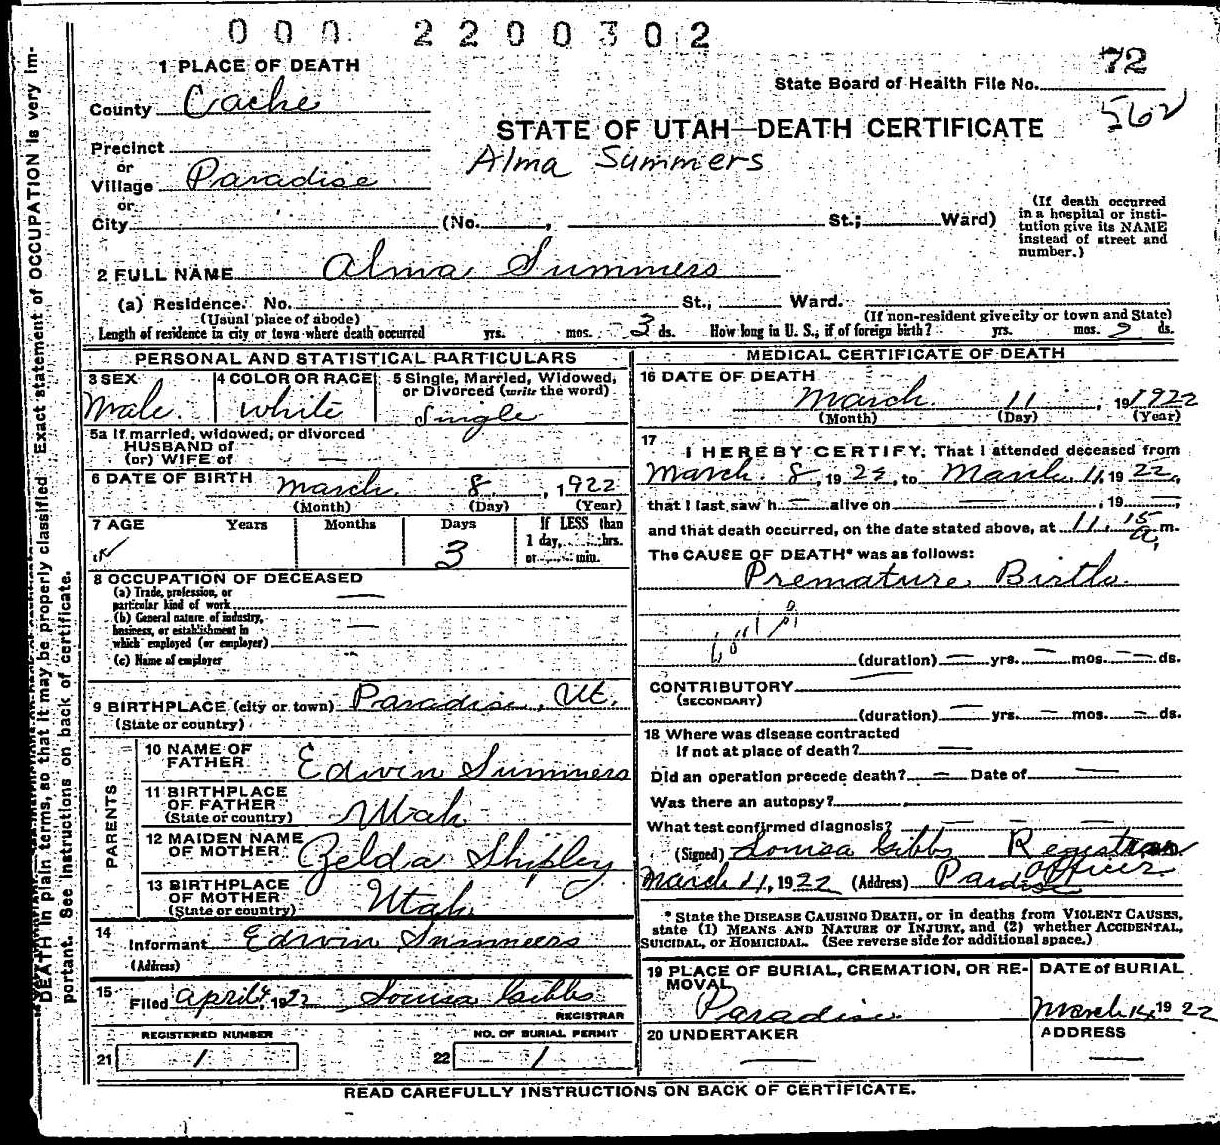 0 0 0 2 2 0 0 3 0 2
1 PLACE OF DEATH
72
State Board of Health File No.
562
County Cache
STATE OF UTAH—DEATH CERTIFICATE
Precinct
Alma Summers
or
Village Paradise
or
City (No. , St.; Ward)
(If death occurred
in a hospital or insti-
tution give its NAME
instead of street and
number.)
2 FULL NAME Alma Summers
(a) Residence. No. St., Ward.
(Usual place of abode) (If non-resident give city or town and State)
Length of residence in city or town where death occurred yrs. mos. 3 ds. How long in U. S., if of foreign birth? yrs. mos. 2 ds.
PERSONAL AND STATISTICAL PARTICULARS
3 SEX
Male.
4 COLOR OR RACE
White
5 Single, Married, Widowed,
or Divorced (write the word)
Single
5a If married, widowed, or divorced
HUSBAND of
(or) WIFE of —
6 DATE OF BIRTH March 8, 1922
(Month) (Day) (Year)
7 AGE Years Months Days If LESS than
1 day, hrs.
3 or min.
8 OCCUPATION OF DECEASED
(a) Trade, profession, or
particular kind of work —
(b) General nature of industry,
business, or establishment in
which employed (or employer) —
(c) Name of employer
9 BIRTHPLACE (city or town) Paradise, Ut.
(State or country)
PARENTS
10 NAME OF
FATHER Edwin Summers
11 BIRTHPLACE
OF FATHER
(State or country) Utah
12 MAIDEN NAME
OF MOTHER Zelda Shipley
13 BIRTHPLACE
OF MOTHER
(State or country) Utah
14
Informant Edwin Summers
(Address)
15 Filed April 4, 1922 Louisa Gibbs
REGISTRAR
REGISTERED NUMBER NO. OF BURIAL PERMIT
21 1 22 1
MEDICAL CERTIFICATE OF DEATH
16 DATE OF DEATH
March 11, 191922
(Month) (Day) (Year)
17
I HEREBY CERTIFY, That I attended deceased from
March 8, 1922, to March 11, 1922,
that I last saw h— alive on —, 19—
and that death occurred, on the date stated above, at 11.15 a. m.
The CAUSE OF DEATH* was as follows:
Premature Birth
(duration) — yrs. — mos. — ds.
CONTRIBUTORY —
(SECONDARY)
(duration) — yrs. — mos. — ds.
18 Where was disease contracted
If not at place of death? —
Did an operation precede death? — Date of —
Was there an autopsy?
What test confirmed diagnosis? — — —
(Signed) Louisa Gibbs Registrar
officer
March 11, 1922 (Address) Pardise
* State the DISEASE CAUSING DEATH, or in deaths from VIOLENT CAUSES,
state (1) MEANS AND NATURE OF INJURY, and (2) whether ACCIDENTAL,
SUICIDAL, or HOMICIDAL. (See reverse side for additional space.)
19 PLACE OF BURIAL, CREMATION, OR RE-
MOVAL
Paradise
DATE of BURIAL
March 1922
20 UNDERTAKER
—
ADDRESS
—
READ CAREFULLY INSTRUCTIONS ON BACK OF CERTIFICATE.
DEATH in plain terms, so that it may be properly classified. Exact statement of OCCUPATION is very im-
portant. See instructions on back of certificate.